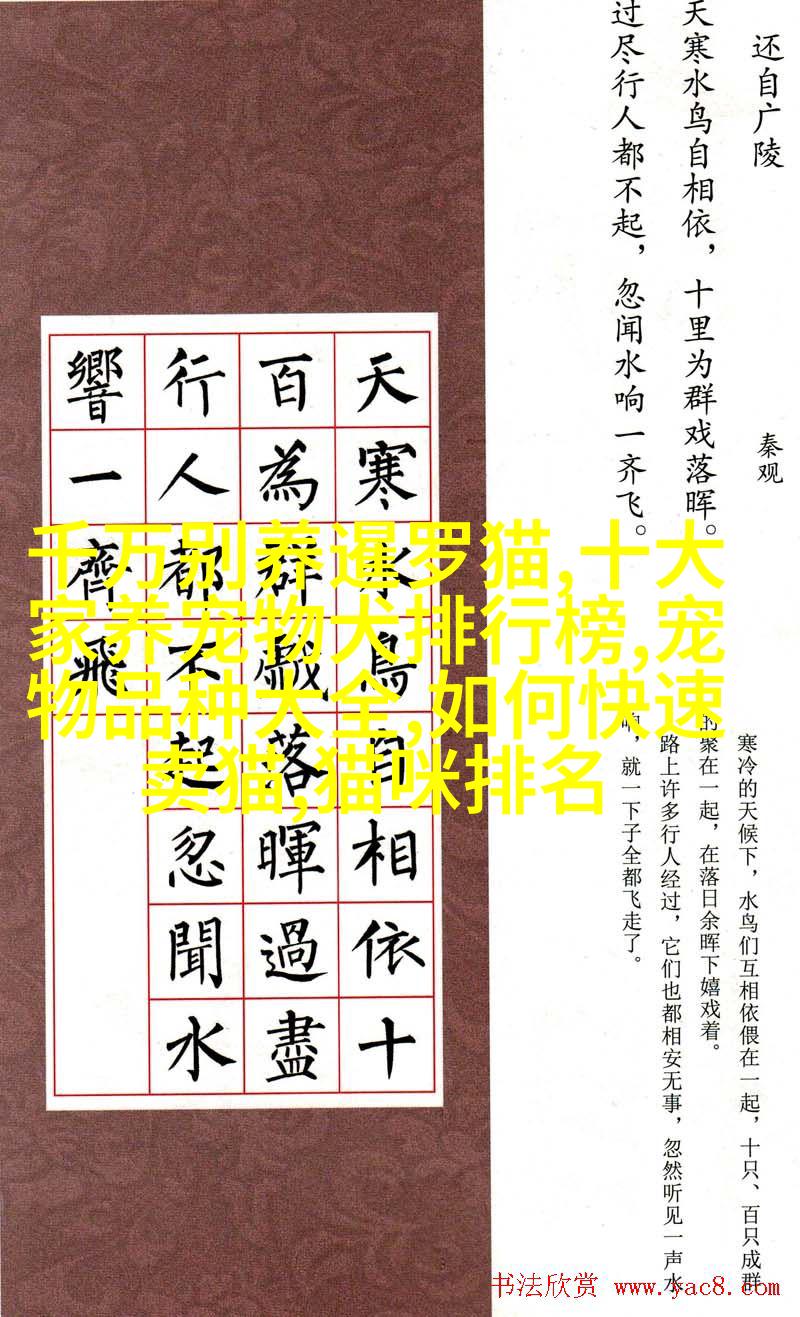 还自广陵
秦观
天寒水鸟自相依，十里为群戏落晖。
过尽行人都不起，忽闻水响一齐飞。
寒冷的天候下，水鸟们互相依偎在一起，十只、百只成群
的聚在一起，在落日余晖下嬉戏着。
路上许多行人经过，它们也都相安无事，忽然听见一声水
响，就一下子全都飞走了。
天寒水鳥自相依十
百為群戲落暉過盡
行人都不起忽聞水
響一齊飛
千万别养暹罗猫,十大
家养宠物犬排行榜,宠
物品种大全,如何快速
卖猫,猫咪排名
书法欣赏 www.yac8.com